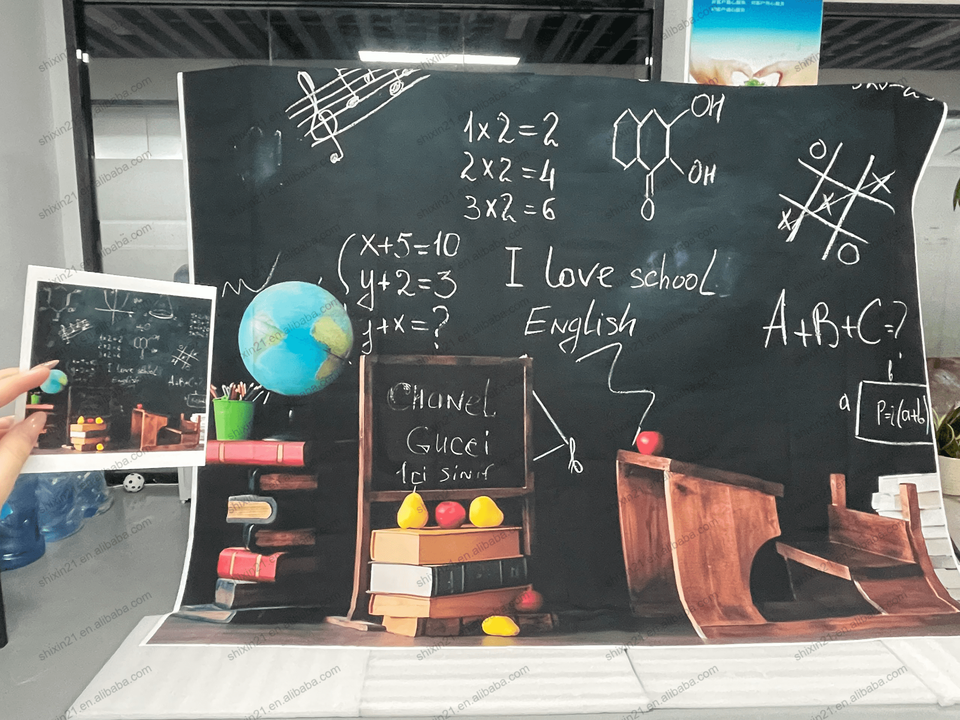 1x2=2
2x2=4
3x2=6
OH
OH
O
O
X
X
X
O
x+5=10
y+2=3
y+x=?
I love school
English
A+B+C=?
b
a
P=i(a+b)
Chanel
Gucci
1ci sinif
shixin21.en.alibaba.com